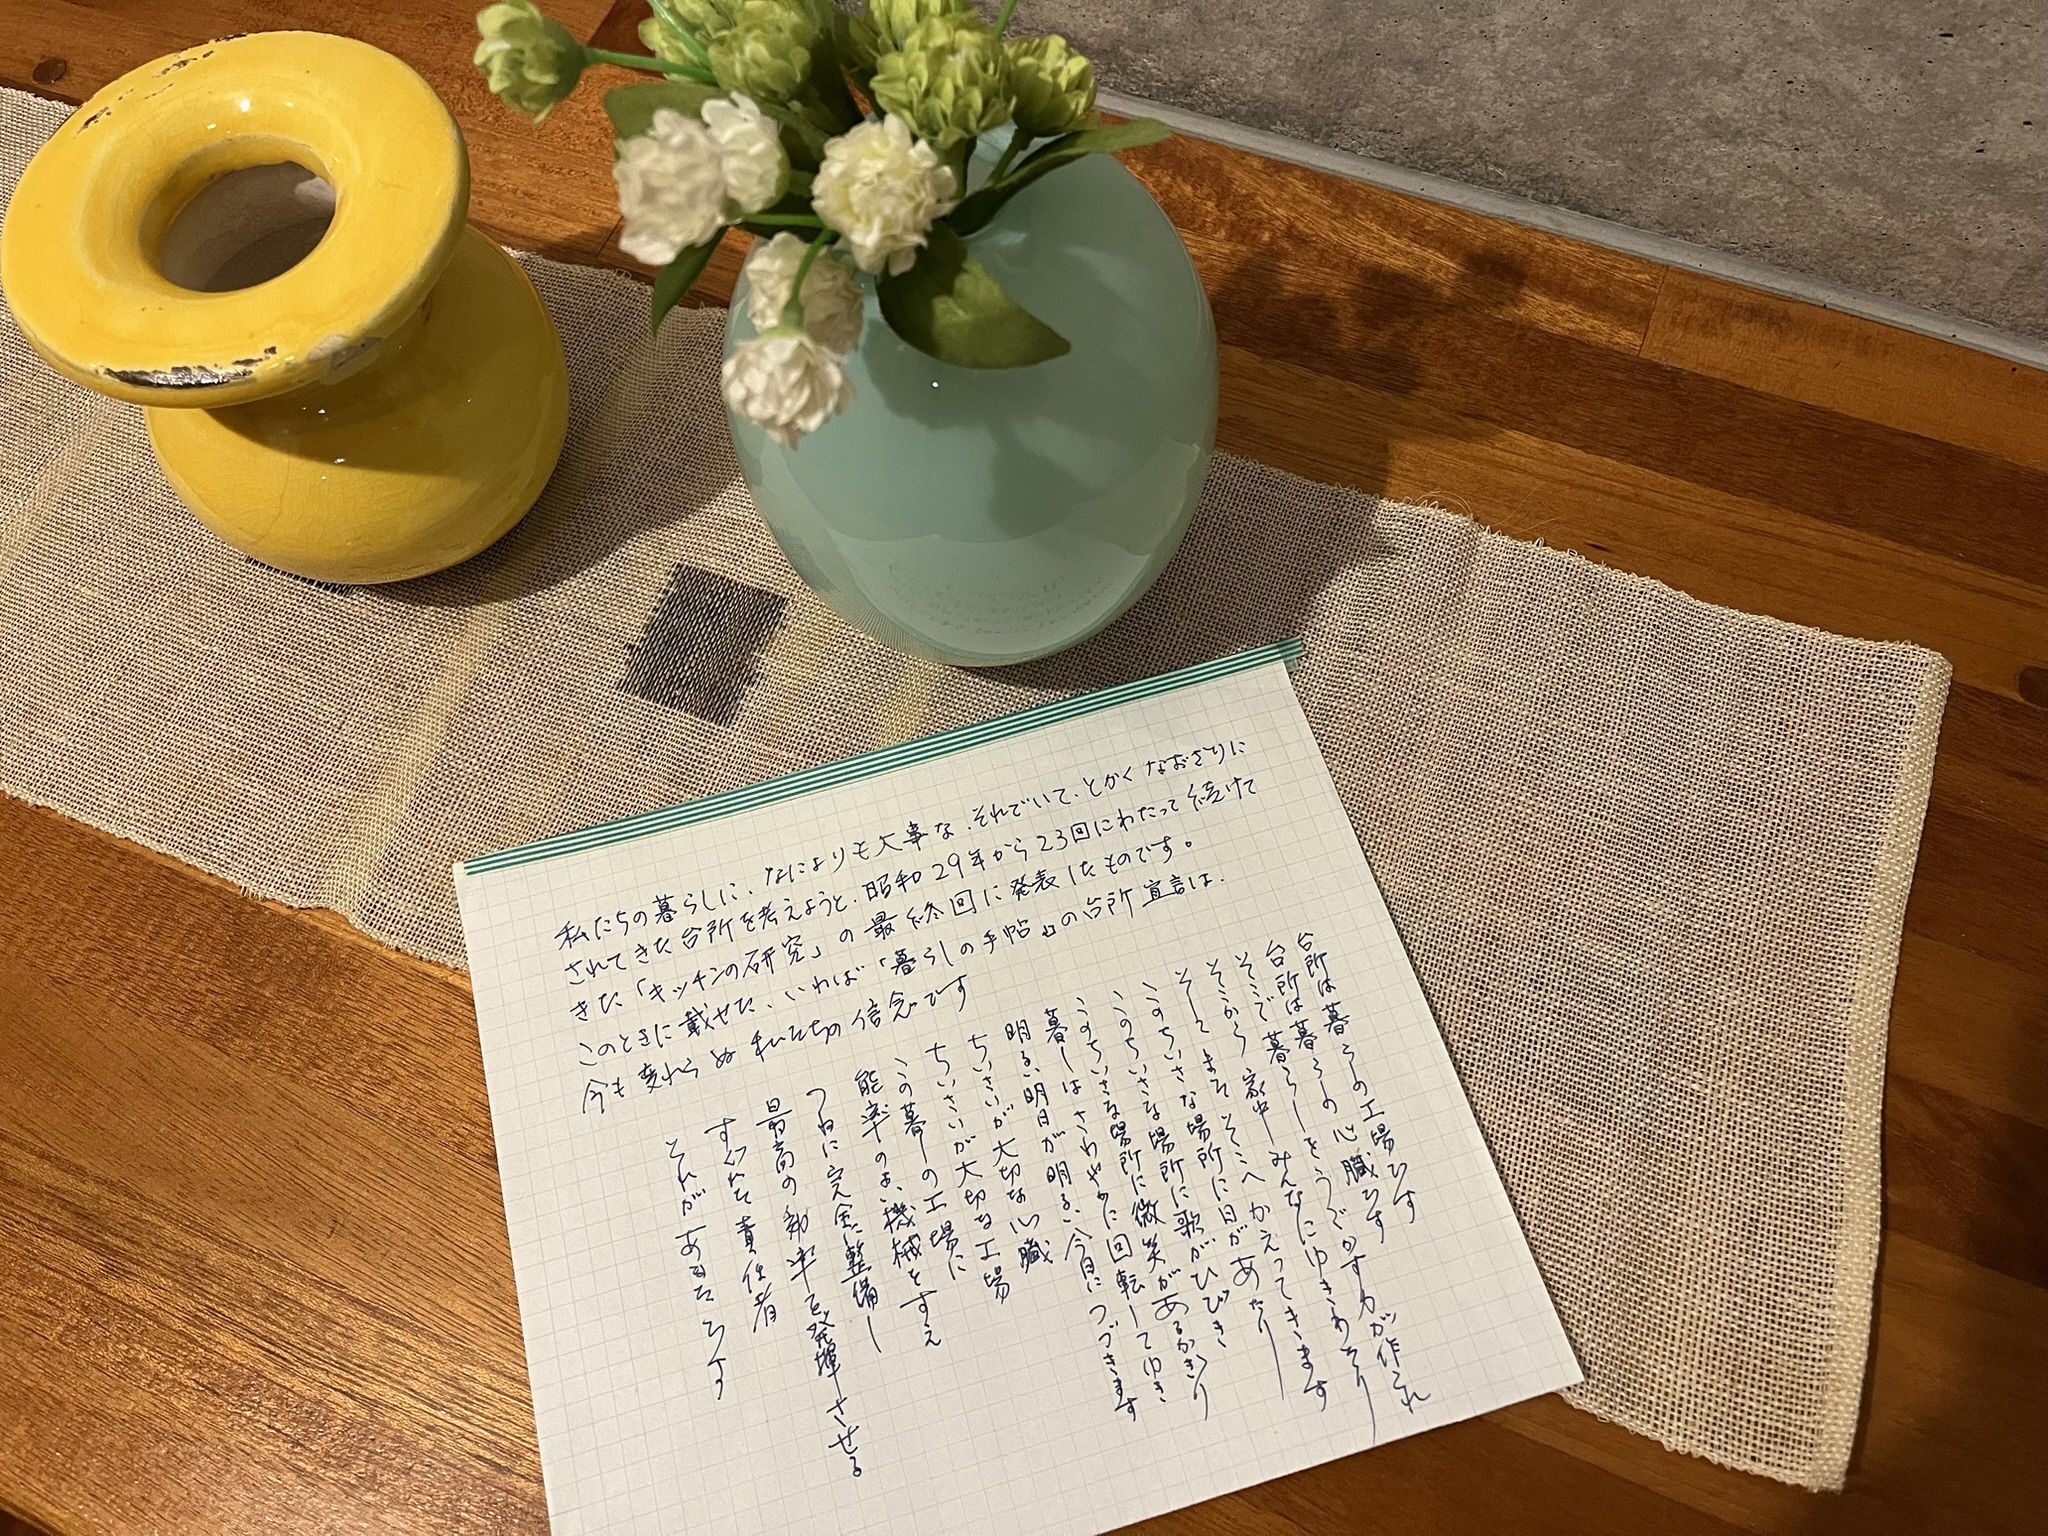 私たちの暮らしに、なによりも大事な、それでいて、とかくなおざりに
されてきた台所を考えようと、昭和29年から23回にわたって続けて
きた「キッチンの研究」の最終回に発表したものです。
このときに載せた、いわば「暮らしの手帖」の台所宣言は、
今も変わらぬ私たちの信念です
台所は暮らしの工場です
台所は暮らしの心臓です
そこで暮らしをうごかす力が作られ
そこから家中みんなにゆきわたり
そしてまたそこへかえってきます
このちいさな場所に日があたり
このちいさな場所に歌がひびき
このちいさな場所に微笑があるかぎり
暮しはさわやかに回転してゆき
明るい明日が明るい今日につづきます
ちいさいが大切な心臓
ちいさいが大切な工場
この暮しの工場に
能率のよい機械をすえ
つねに完全に整備し
最高の効率を発揮させる
すぐれた責任者
それがあなたです